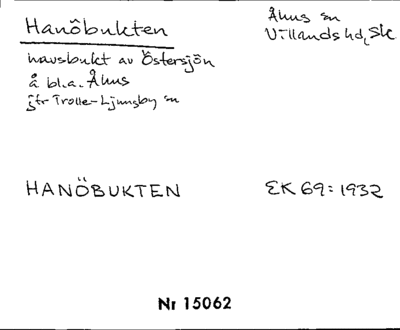 Hanöbukten
Åhus sn
Villands hd, Sk
havsbukt av Östersjön
å bl.a. Åhus
jfr Trolle-Ljungby sn
HANÖBUKTEN
EK 69:1932
Nr 15062